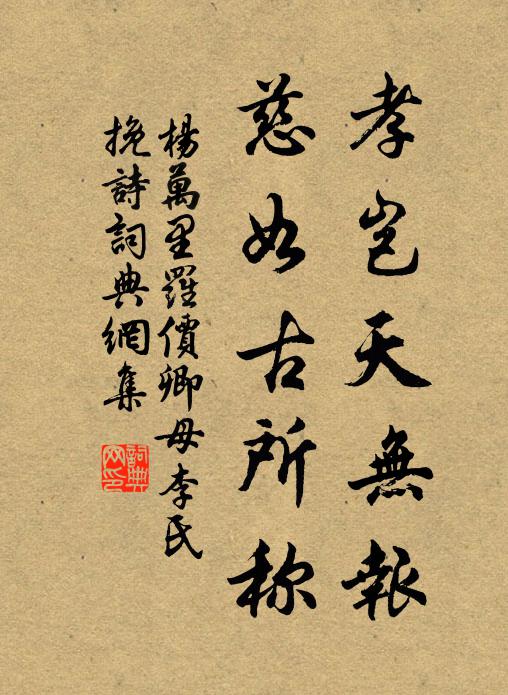 孝岂天無報
慈如古所称
楊萬里羅價卿母李氏
挽詩詞典網集
詞典
网印